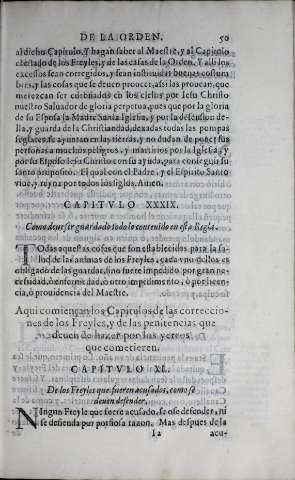 DE LA ORDEN. 50
al dicho Capitulo, y hagan saber al Maestre, y al Capitulo
el estado de los Freyles, y de las casas de la Orden. Y alli los
excessos sean corregidos, y sean instituidas buenas costum
bres, y las cosas que se deuen proueer, assi los prouean, que
merezcan ser combinados en los cielos por Iesu Christo
nuestro Saluador de gloria perpetua, pues que por la gloria
de su Esposa la Madre Santa Iglesia, y por la defension de-
lla, y guarda de la Christiandad, dexadas todas las pompas
seglares, se ayuntan en las tierras, y no dudan de poner sus
personas a muchos peligros, y martirios por la Iglesia, y
por su Esposo Iesu Christo con su ayuda, para conseguir su
santo proposito. El qual con el Padre, y el Espiritu Santo
viue, y reyna por todos los siglos, Amen.
CAPITVLO XXXIX.
Como deue ser guardado todo lo contenido en esta Regla.
TOdas aquestas cosas que son establecidas para la sa-
lud de las animas de los Freyles, cada vno dellos es
obligado de las guardar, sino fuere impedido por gran ne-
cessidad, ò enfermedad, ò otro impedimento, ò por licen-
cia, ò prouidencia del Maestre.
Aqui comiençan los Capitulos de las correccio-
nes de los Freyles, y de las penitencias que
deuen de hazer por los yerros
que cometieren.
CAPITVLO XL.
De los Freyles que fueren acusados, como se
deuen defender.
NIngun Freyle que fuere acusado, se ose defender, ni
se defienda por porfiosa razon. Mas despues de la
I2 acu-